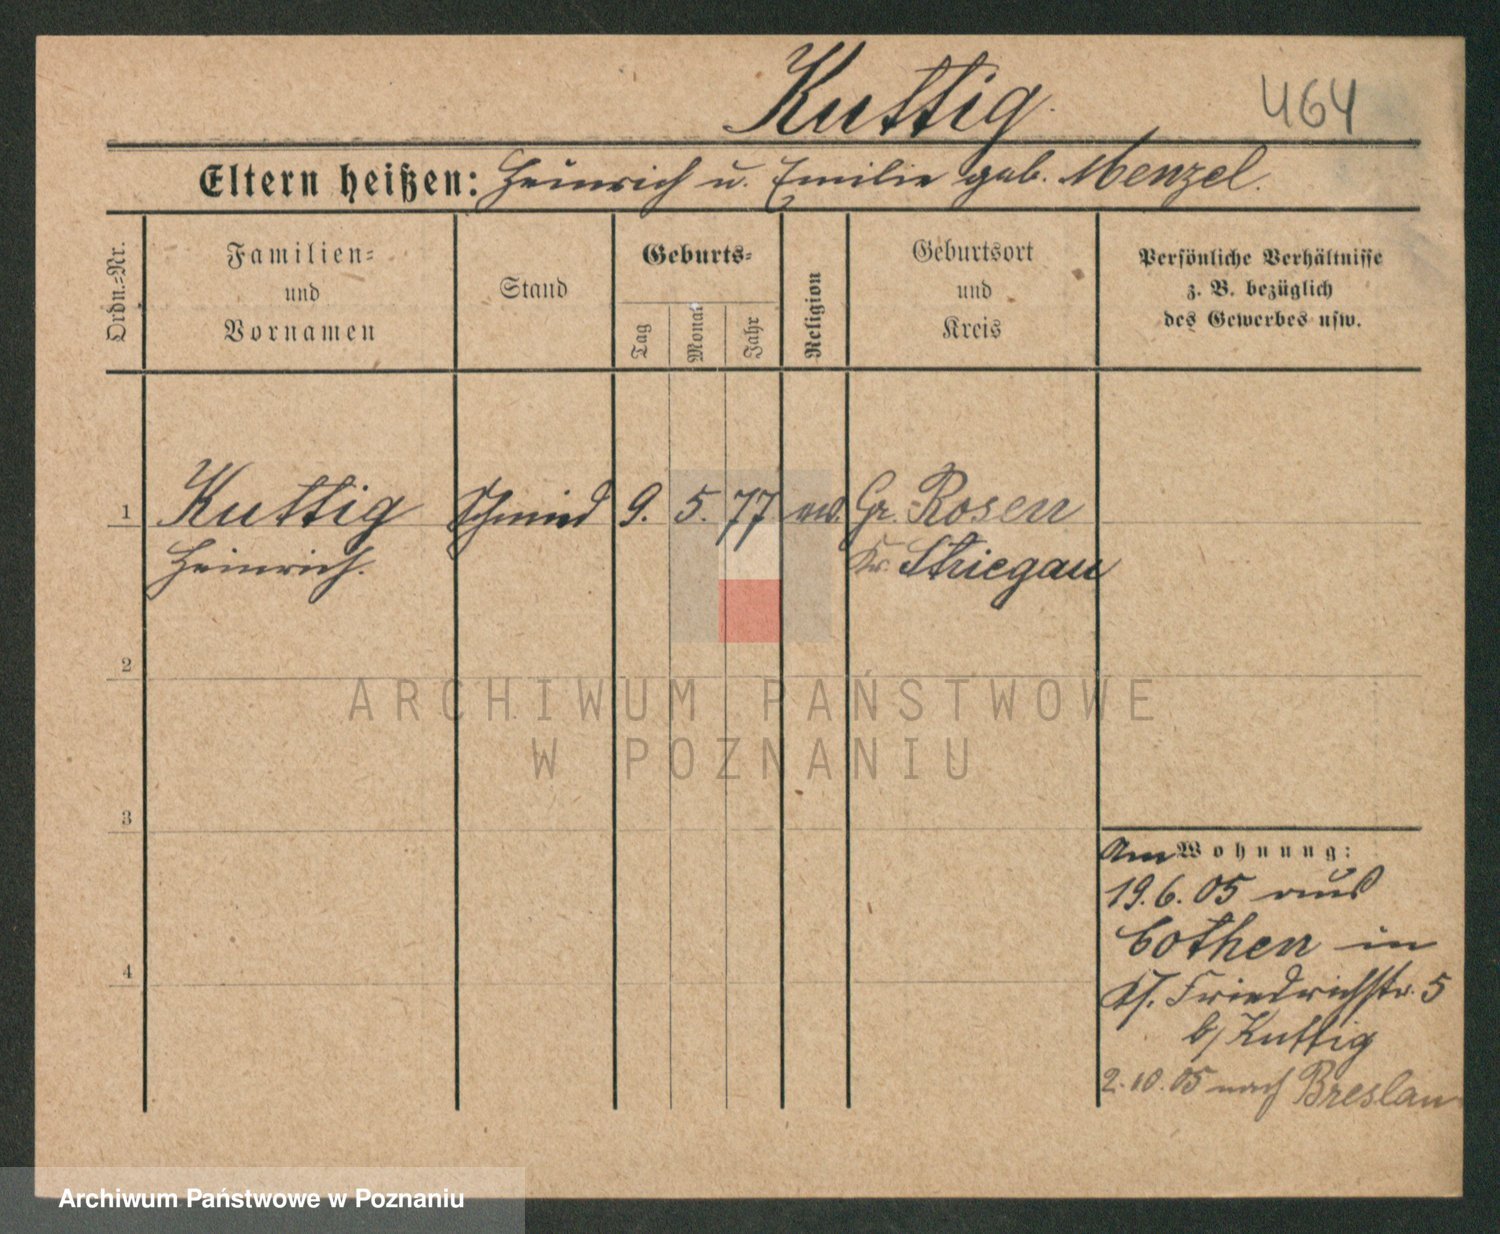 Kuttig
464
Eltern heißen: Heinrich u. Emilie geb. Menzel.
Ordn.=Nr.
Familien=
und
Vornamen
Stand
Geburts=
Tag
Monat
Jahr
Religion
Geburtsort
und
Kreis
Persönliche Verhältnisse
z. B. bezüglich
des Gewerbes usw.
1 Kuttig Schmied 9. 5. 77 ev. Gr. Rosen
Heinrich. Kr. Striegau
2
ARCHIWUM PAŃSTWOWE
W POZNANIU
3
Am Wohnung:
19.6.05 aus
Cothen in
Friedrichstr. 5
4
b/ Kuttig
2.10.05 nach Breslau
Archiwum Państwowe w Poznaniu